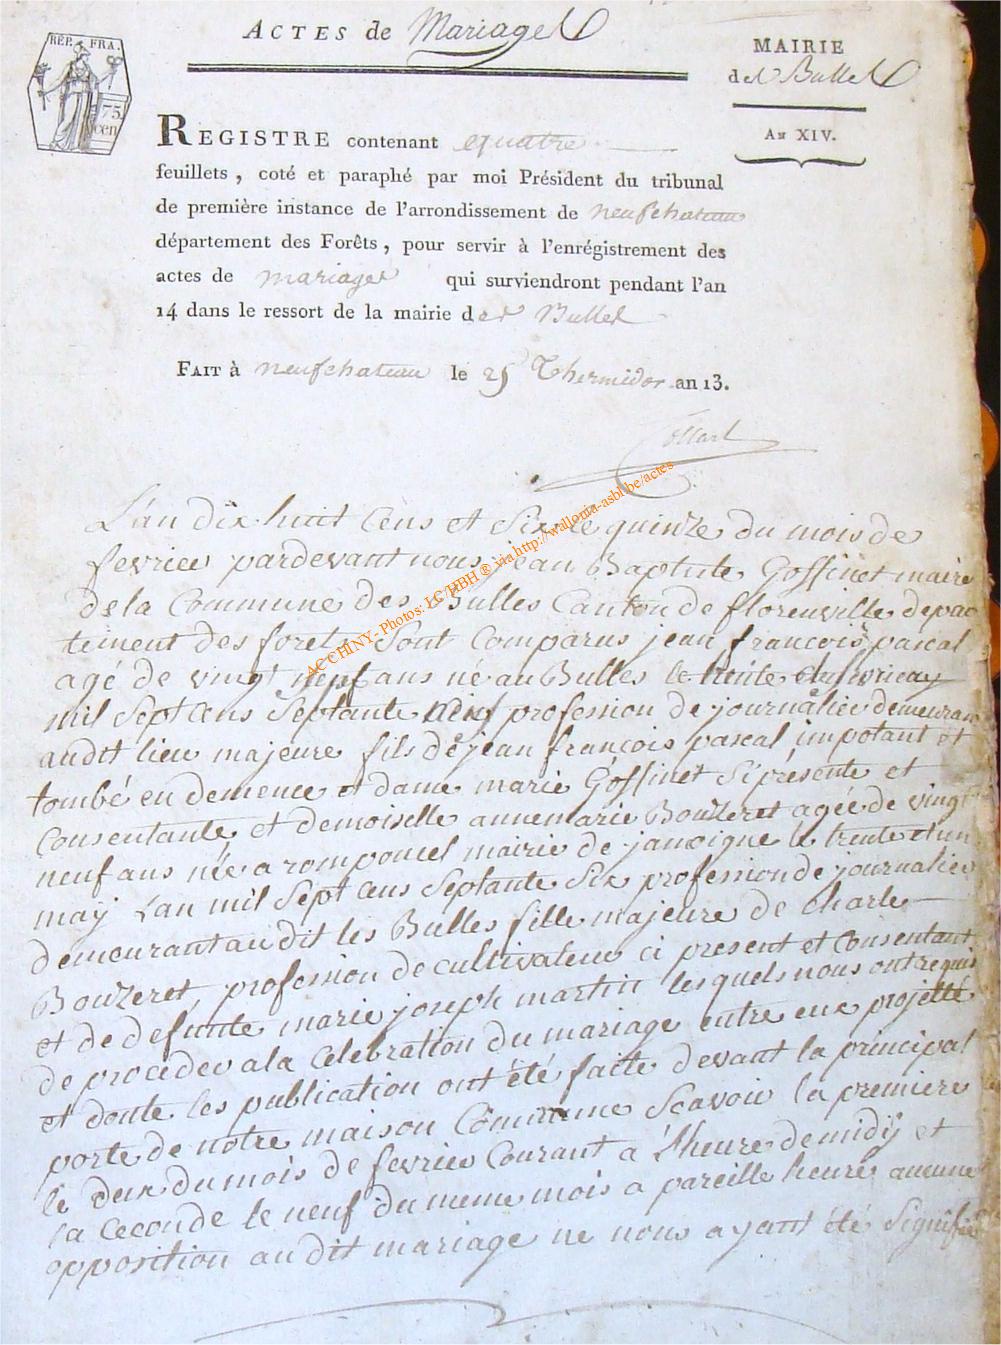 RÉP. FRA.
75
cen
ACTES de Mariages
MAIRIE
des Bulles
AN XIV.
REGISTRE contenant quatre
feuillets, coté et paraphé par moi Président du tribunal
de première instance de l'arrondissement de neufchateau
département des Forêts, pour servir à l'enrégistrement des
actes de mariages qui surviendront pendant l'an
14 dans le ressort de la mairie des Bulles
FAIT à neufchateau le 25 Thermidor an 13.
Collart
L'an dix huit Cens et Six le quinze du mois de
fevrier pardevant nous jean Baptiste Goffinet maire
de la Commune des Bulles Canton de florenville depar
tement des forets Sont Comparus jean françois pascal
agé de vingt neuf ans né au Bulles le trente
mil Sept Cens Septante profession de journalier demeurant
audit lieu majeure fils de jean françois pascal impotant et
tombé en demence et dame marie Goffinet Si présente et
Consentante, et demoiselle annemarie Bouzeret agée de vingt
neuf ans née a romponcel mairie de jamoigne le trente et un
may L'an mil Sept Cens Septante Six profession de journalier
demeurant audit les Bulles fille majeure de Charle
Bouzeret, profession de cultivateur ci present et Consentant
et de defunte marie joseph martin lesquels nous ont requis
de proceder a la Celebration du mariage entre eux projetté
et donte les publication ont été faite devant la principal
porte de notre maison Commune Scavoir la premiere
le deux du mois de fevrier Courant a l'heure de midÿ et
la Ceconde le neuf du meme mois a pareille heure aucune
opposition audit mariage ne nous ayant été Signifié
AC CHINY - Photos: LC HBH ® via http://wallonia-asbl.be/actes